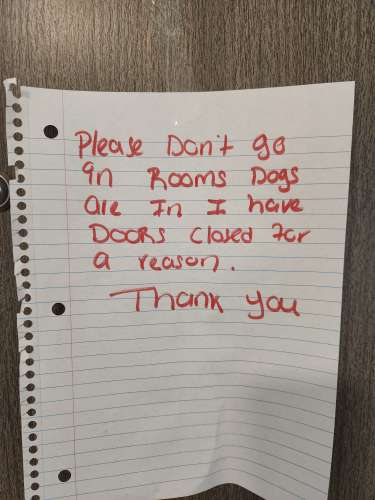 Please Don't go
In Rooms Dogs
are In I have
Doors closed For
a reason.
Thank you